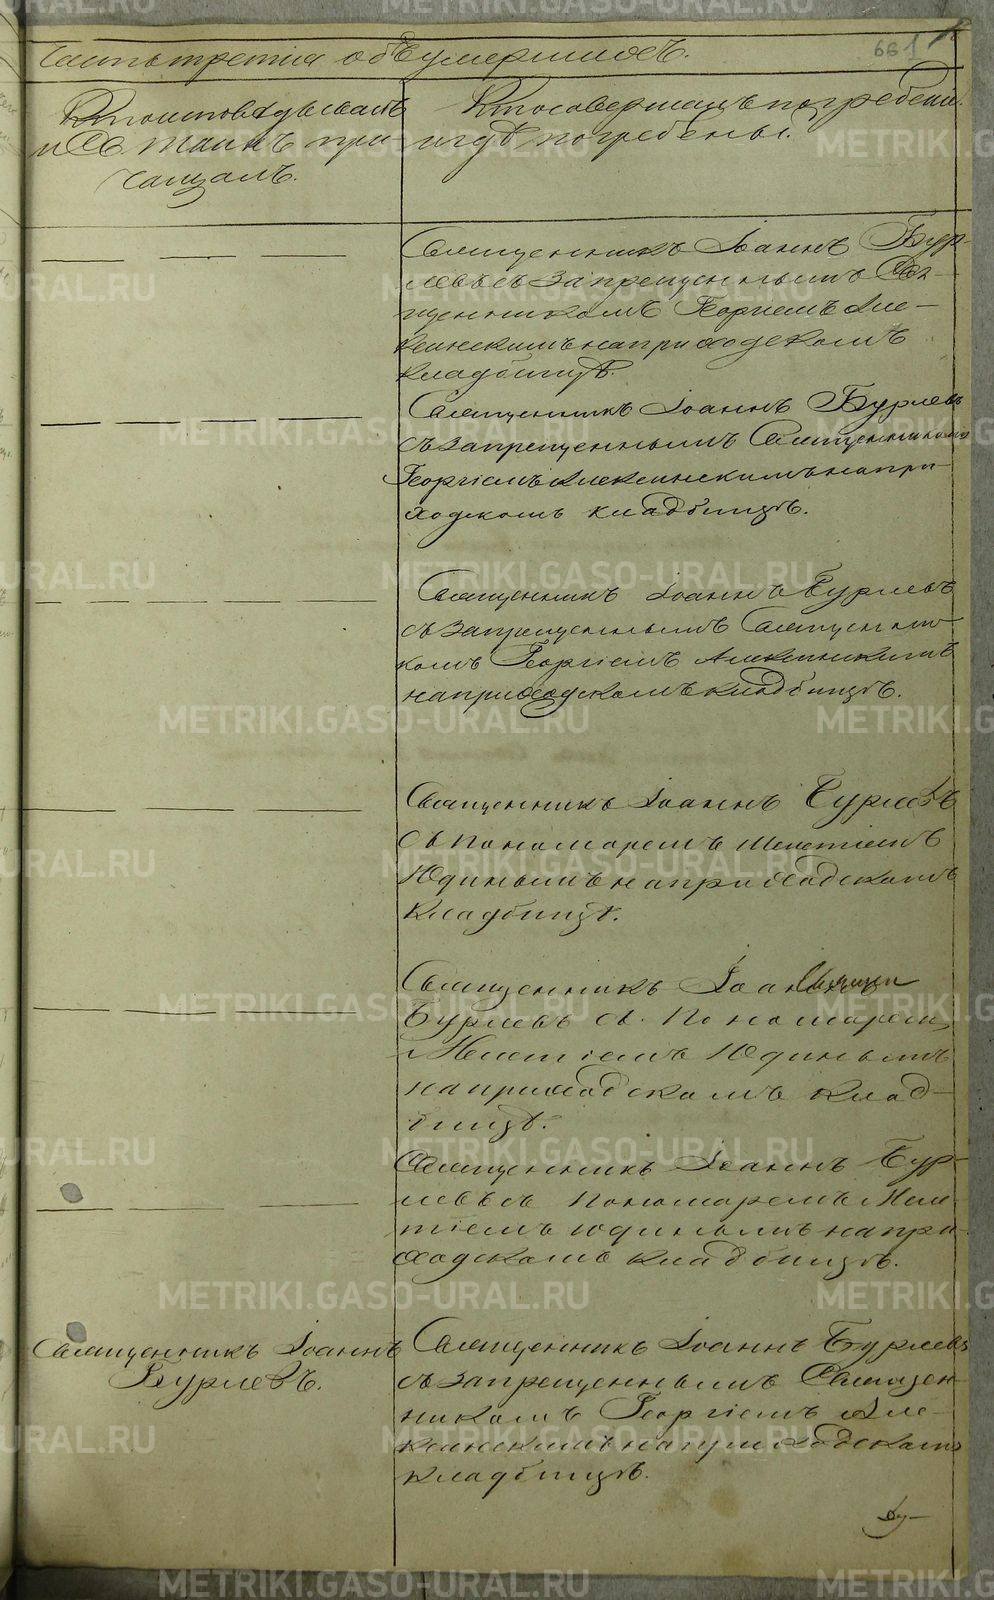 Часть третія объ умершихъ.
661
Кто исповѣдывалъ
и Св. таинъ при
чащалъ.
Кто совершалъ погребеніе
и гдѣ погребены.
Священникъ Іоаннъ Бур-
левъ съ запрещеннымъ Свя-
щенникомъ Георгіемъ Але-
ксинскимъ на приходскомъ
кладбищѣ.
Священникъ Іоаннъ Бурлевъ
съ запрещеннымъ Священникомъ
Георгіемъ Алексинскимъ на при-
ходскомъ кладбищѣ.
Священникъ Іоаннъ Бурлевъ
съ запрещеннымъ Священни-
комъ Георгіемъ Алексинскимъ
на приходскомъ кладбищѣ.
Священникъ Іоаннъ Бурлевъ
съ пономаремъ Мелетіемъ
Юдинымъ на приходскомъ
кладбищѣ.
Священникъ Іоаннъ
Бурлевъ съ Пономаремъ
Мелетіемъ Юдинымъ
на приходскомъ клад-
бищѣ.
Священникъ Іоаннъ Бур-
левъ съ пономаремъ Меле-
тіемъ Юдинымъ на при-
ходскомъ кладбищѣ.
Священникъ Іоаннъ
Бурлевъ.
Священникъ Іоаннъ Бурлевъ
съ запрещеннымъ Священ-
никомъ Георгіемъ Але-
ксинскимъ на приходскомъ
кладбищѣ.
METRIKI.GASO-URAL.RU